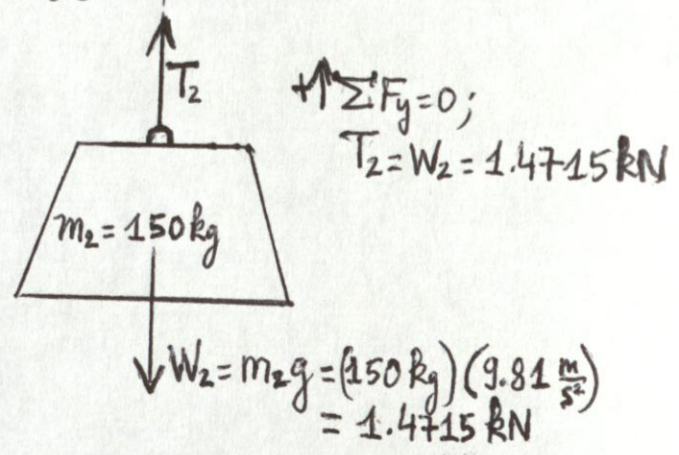 T₂
+↑ΣFy=0;
T₂=W₂=1.4715kN
m₂=150kg
W₂=m₂g=(150kg)(9.81 m/s²)
=1.4715kN